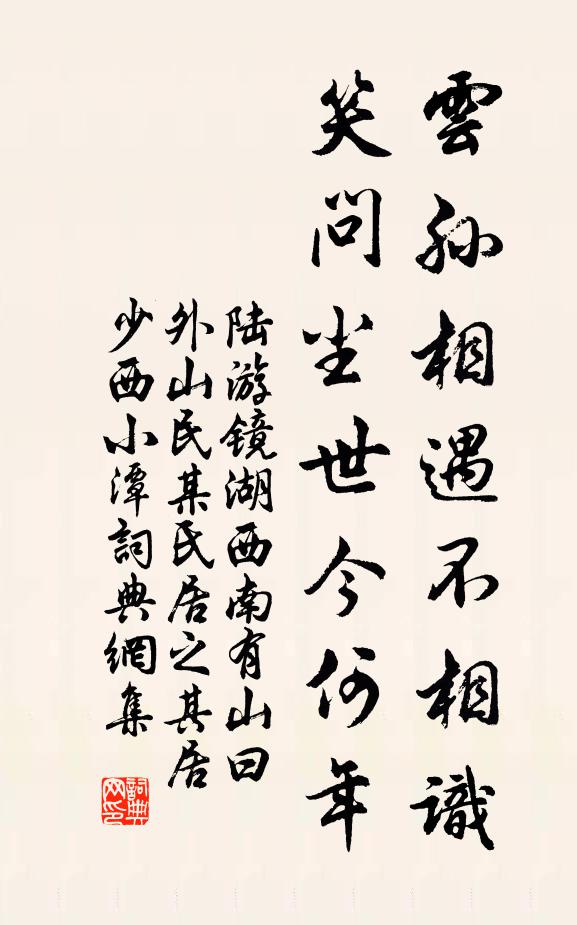 雲孙相遇不相識
笑问尘世今何年
陆游镜湖西南有山曰
外山民某氏居之其居
少西小潭詞典網集
詞典
网印